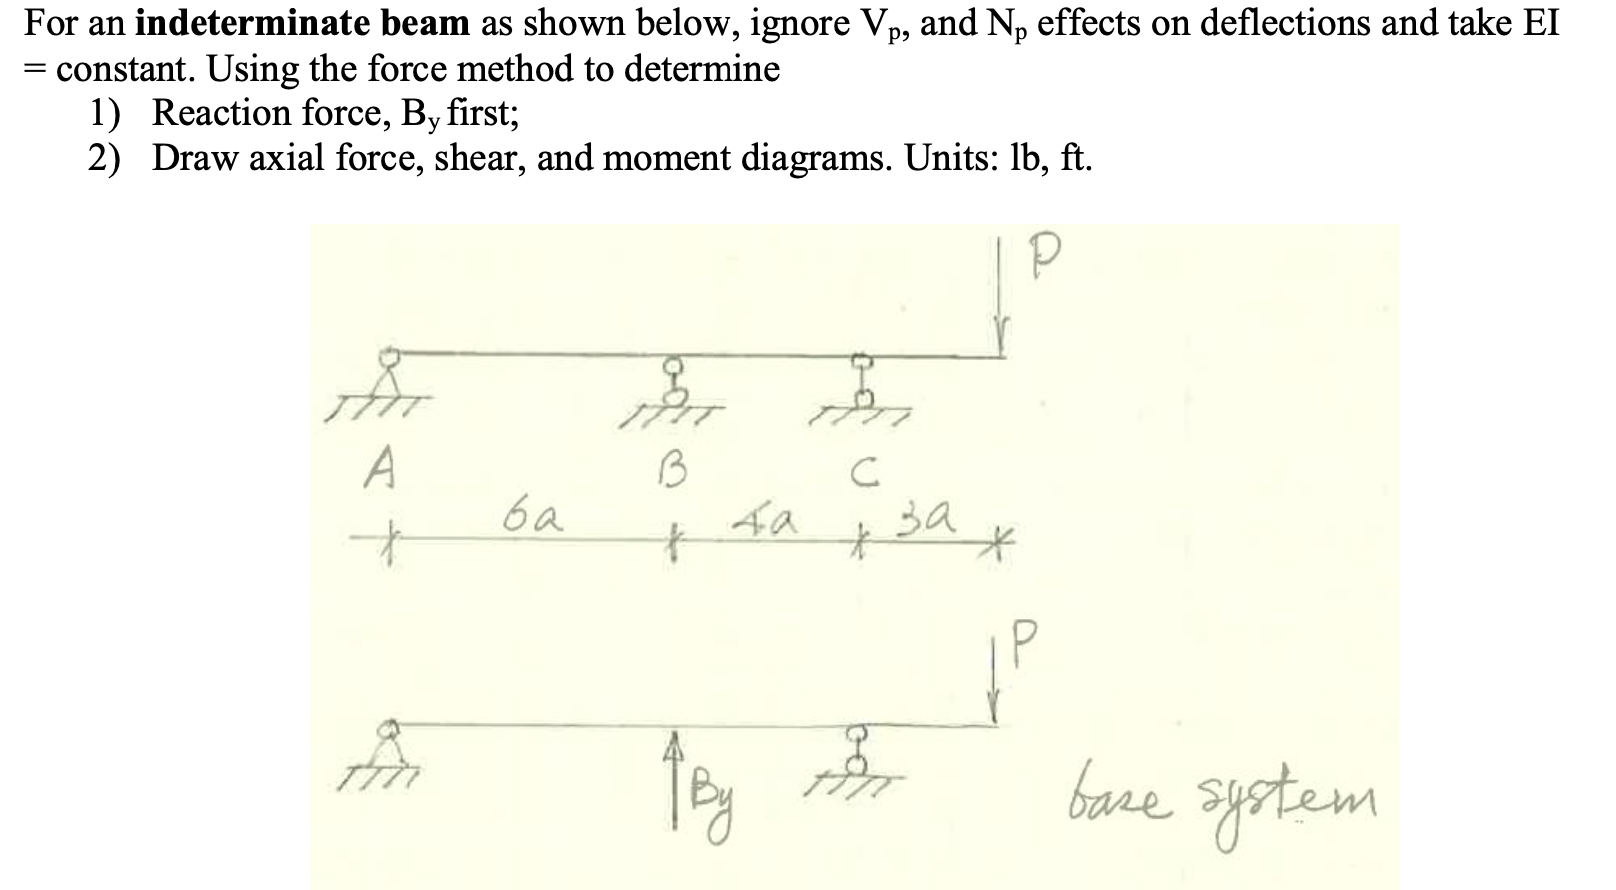 For an indeterminate beam as shown below, ignore Vp, and Np effects on deflections and take EI
= constant. Using the force method to determine
1) Reaction force, By first;
2) Draw axial force, shear, and moment diagrams. Units: lb, ft.
P
A B C
6a 4a 3a
P
By
base system